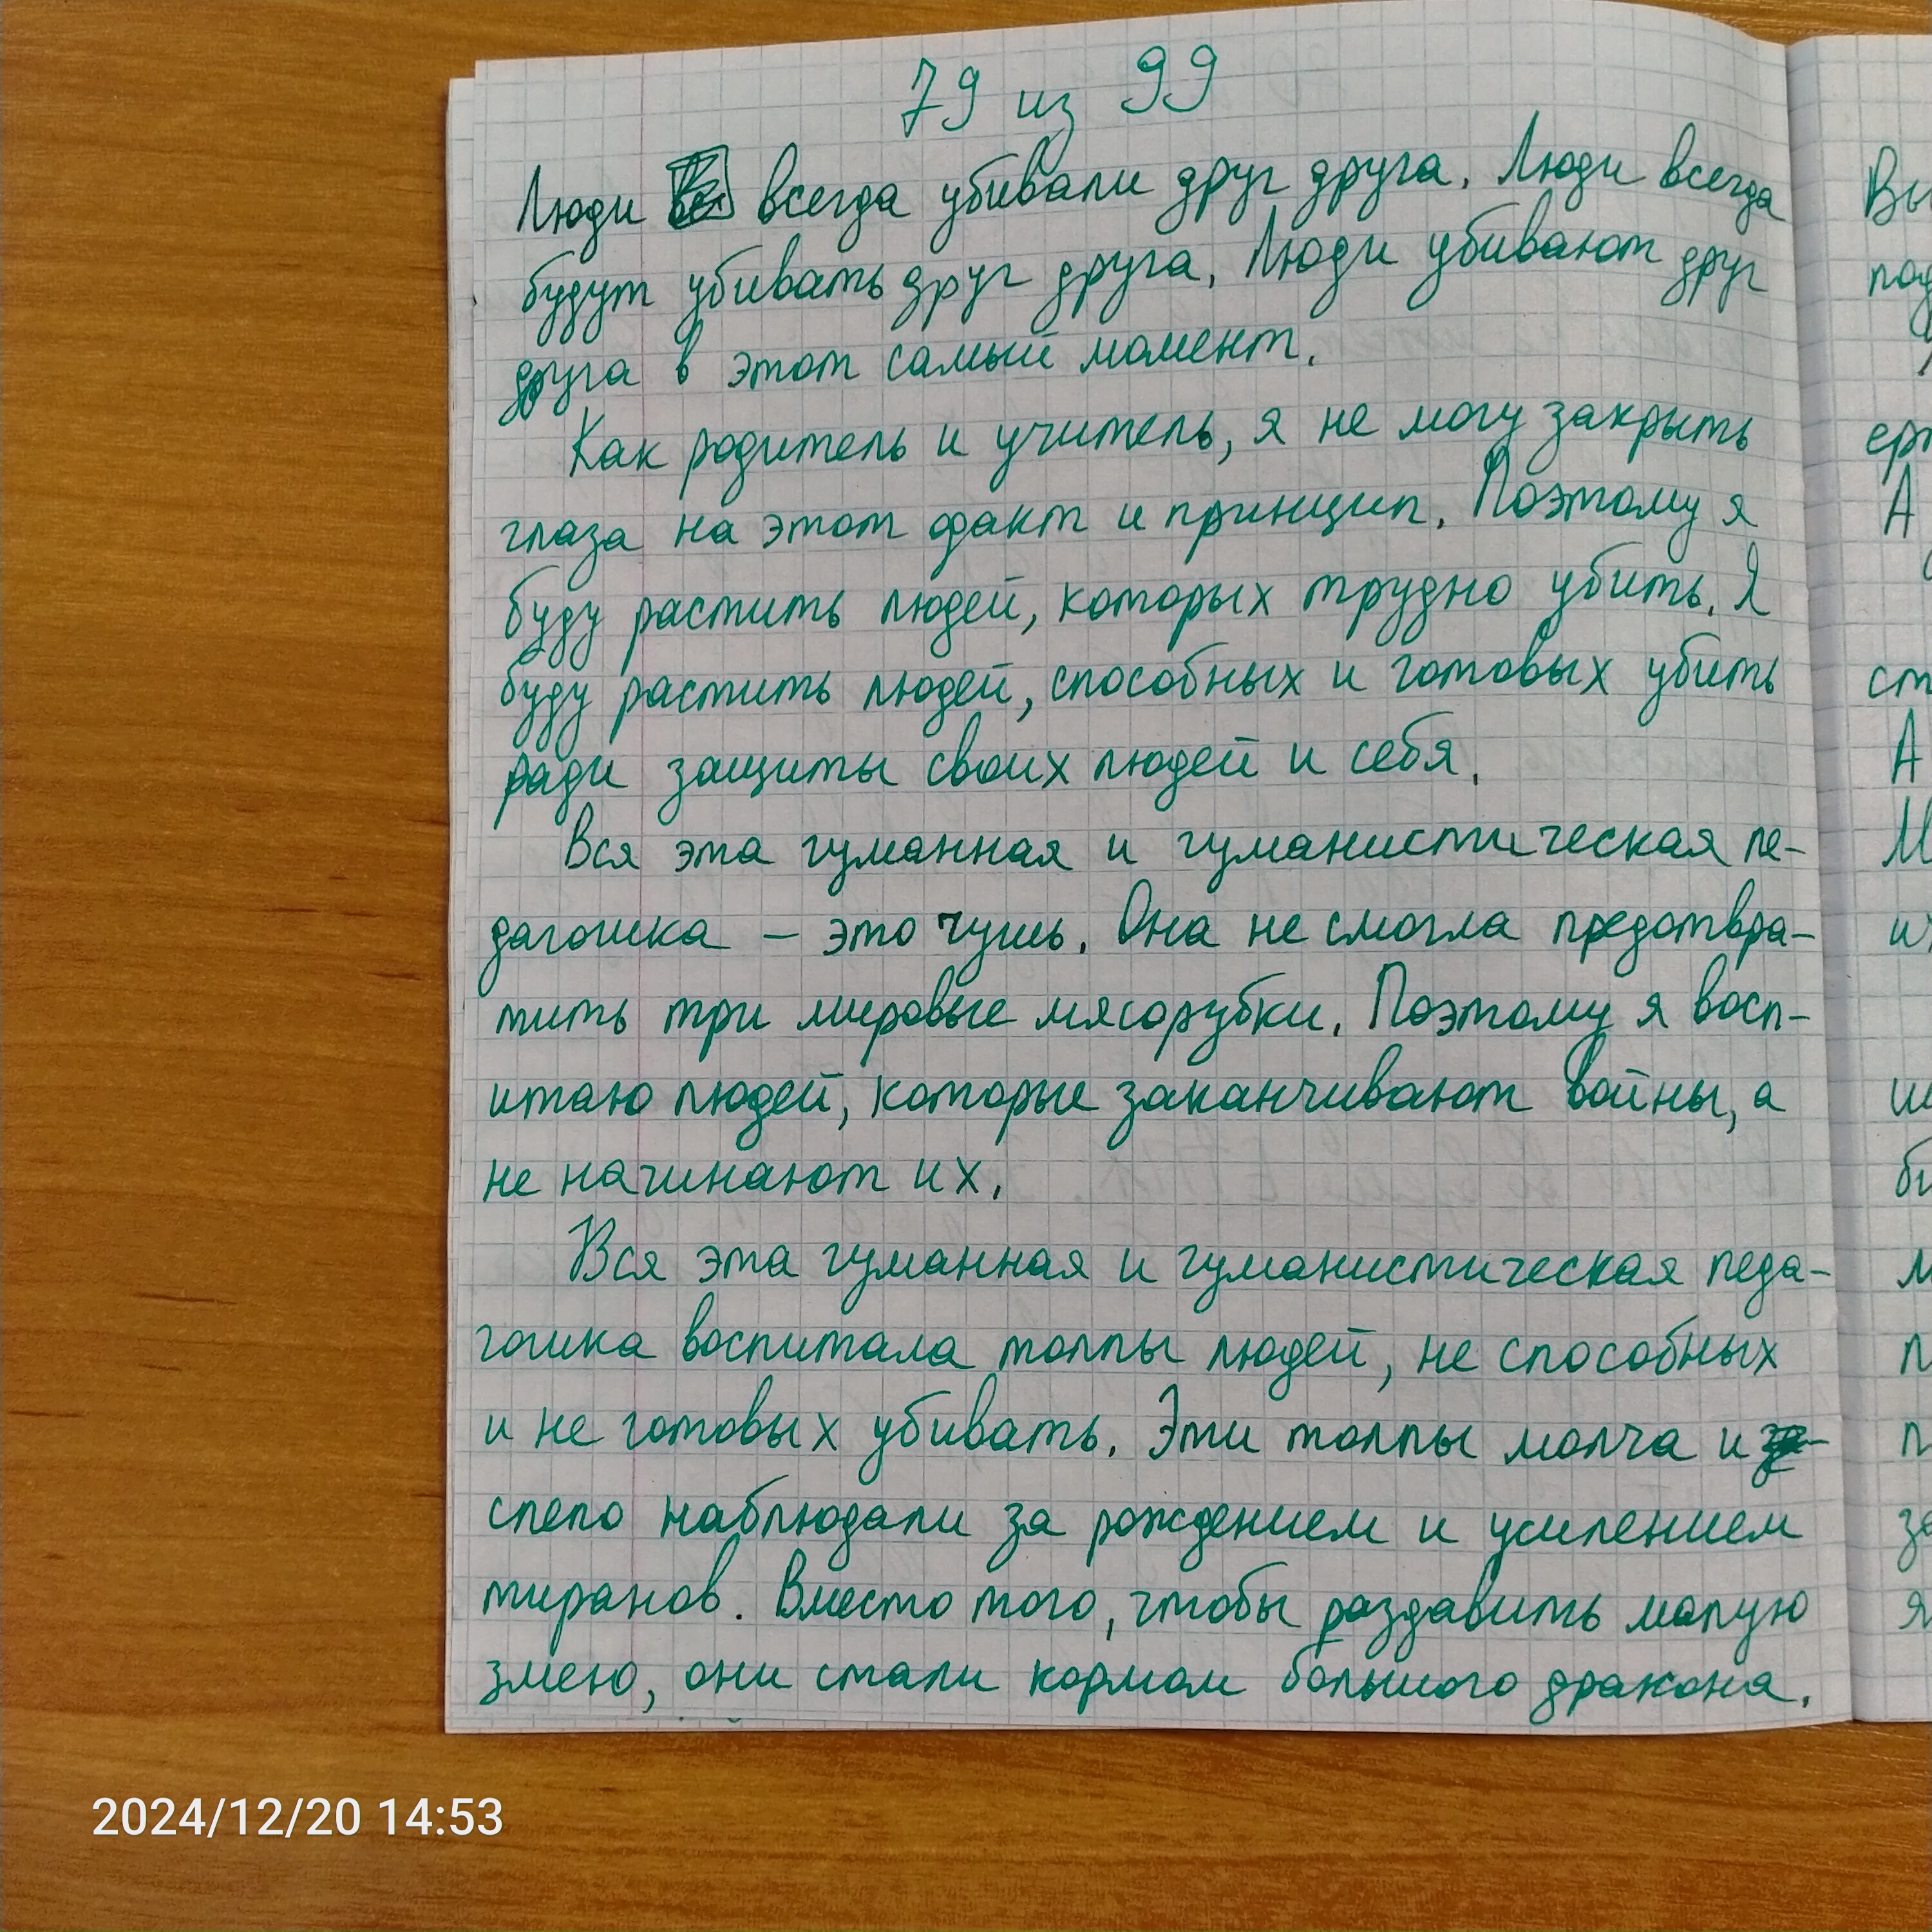 79 из 99
Люди всегда убивали друг друга. Люди всегда
будут убивать друг друга. Люди убивают друг
друга в этот самый момент.
Как родитель и учитель, я не могу закрыть
глаза на этот факт и принцип. Поэтому я
буду растить людей, которых трудно убить. Я
буду растить людей, способных и готовых убить
ради защиты своих людей и себя.
Вся эта гуманная и гуманистическая пе-
дагошка – это чушь. Она не смогла предотвра-
тить три мировые мясорубки. Поэтому я восп-
итаю людей, которые заканчивают войны, а
не начинают их.
Вся эта гуманная и гуманистическая педа-
гошка воспитала толпы людей, не способных
и не готовых убивать. Эти толпы молча и
слепо наблюдали за рождением и усилением
тиранов. Вместо того, чтобы раздавить малую
змею, они стали кормом большого дракона.
2024/12/20 14:53